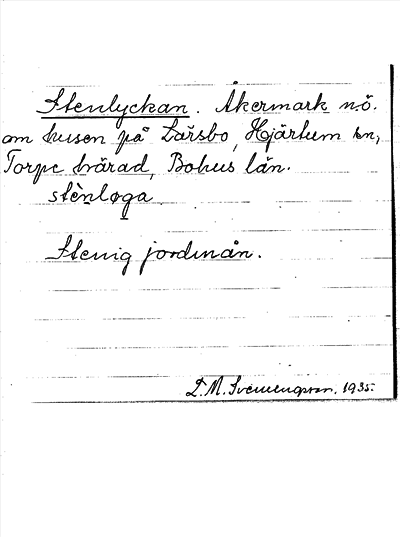 Stenlyckan. Åkermark n.ö.
om husen på Larsbo, Hjärtum sn,
Torpe härad, Bohus län.
stènløga
Stenig jordmån.
L.M. Svenungsson. 1935.